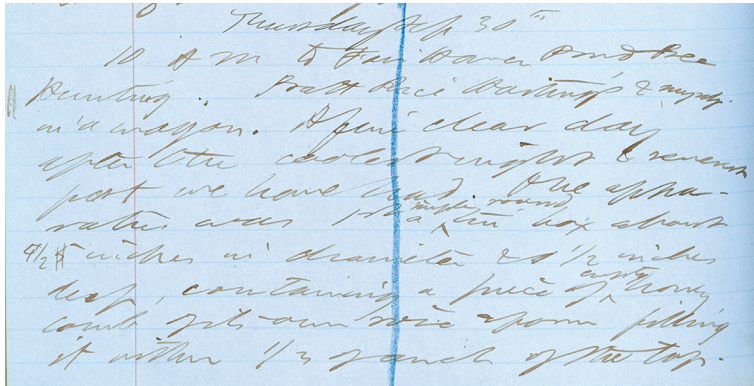 Thursday Sep 30th
10 A M to Fair Haven Pond Bee
Hunting. Pratt Rice Hastings & myself
in a wagon. A fine clear day
after the coolest night & severest
frost we have had. The appa-
ratus was 1st a simple round tin box about
4 1/2 inches in diameter & 1 1/2 inches
deep, containing a piece of empty honey
comb of its own size & form filling
it within 1/3 of an inch of the top.